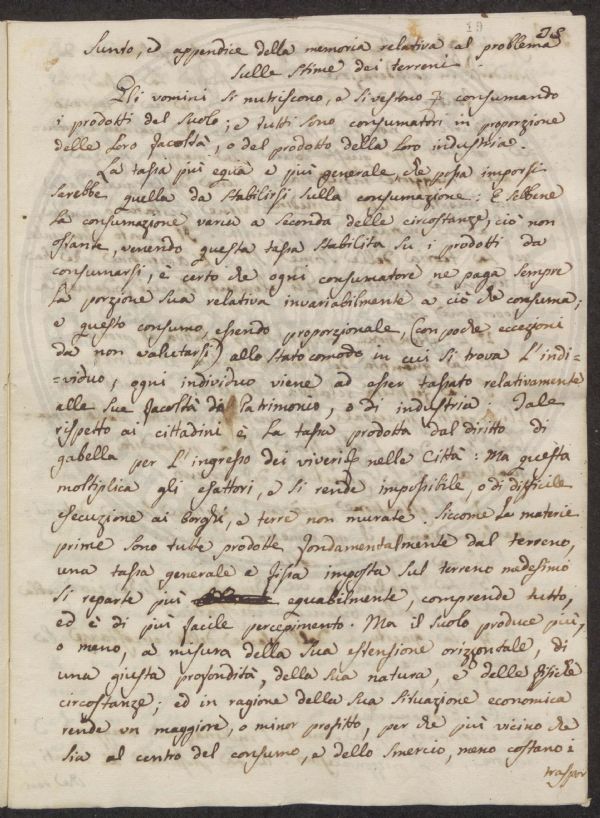 19 28
Sunto, ed appendice della memoria relativa al problema
Sulle Stime dei terreni
Gli uomini si nutriscono, e si vestono consumando
i prodotti del Suolo; e tutti sono consumatori in proporzione
delle loro facoltà, o del prodotto della loro industria.
La tassa più equa e più generale, che possa imporsi
sarebbe quella da Stabilirsi Sulla consumazione: E sebbene
la consumazione varia a Seconda delle circostanze, ciò non
ostante, venendo questa tassa Stabilita Su i prodotti da
consumarsi, è certo che ogni consumatore ne paga Sempre
la porzione Sua relativa invariabilmente a ciò che consuma;
e questo consumo, essendo proporzionale, (con poche eccezioni
da non valutarsi) allo Stato comodo in cui Si trova l'indi=
=viduo, ogni individuo viene ad esser tassato relativamente
alle Sue facoltà di Patrimonio, o di industria: Tale
rispetto ai cittadini è la tassa prodotta dal diritto di
gabella per l'ingresso dei viveri nelle Città: Ma questa
moltiplica gli esattori, e Si rende impossibile, o di difficile
esecuzione ai Borghi, e terre non murate. Siccome le materie
prime Sono tutte prodotte fondamentalmente dal terreno,
una tassa generale e fissa imposta Sul terreno medesimo
Si reparte più equabilmente, comprende tutto,
ed è di più facile percepimento. Ma il Suolo produce più,
o meno, a misura della Sua estensione orizzontale, di
una giusta profondità, della Sua natura, e delle fisiche
circostanze; ed in ragione della Sua Situazione economica
rende un maggiore, o minor profitto, per che più vicino che
Sia al centro del consumo, e dello Smercio, meno costano i
traspor